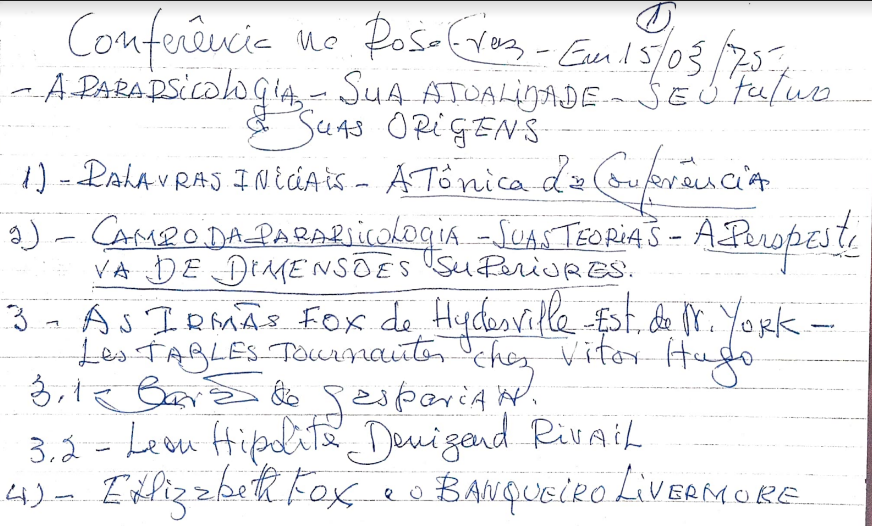 ①
Conferência no Rosa Cruz - Em 15/03/75
- A PARAPSICOLOGIA, - SUA ATUALIDADE - SEU futuro
& SUAS ORIGENS
1) - PALAVRAS INICIAIS - A Tônica da Conferência
2) - CAMPO DA PARAPSICOLOGIA - SUAS TEORIAS - A Perspecti
VA DE DIMENSÕES SUPERIORES.
3 - AS IRMÃS FOX de Hydesville - Est. de N. YORK -
Les TABLES Tournantes chez Vitor Hugo
3.1 - Barão de gasparian.
3.2 - Leon Hipolite Denizend RIVAIL
4) - Elizabeth FOX e o BANQUEIRO LIVERMORE